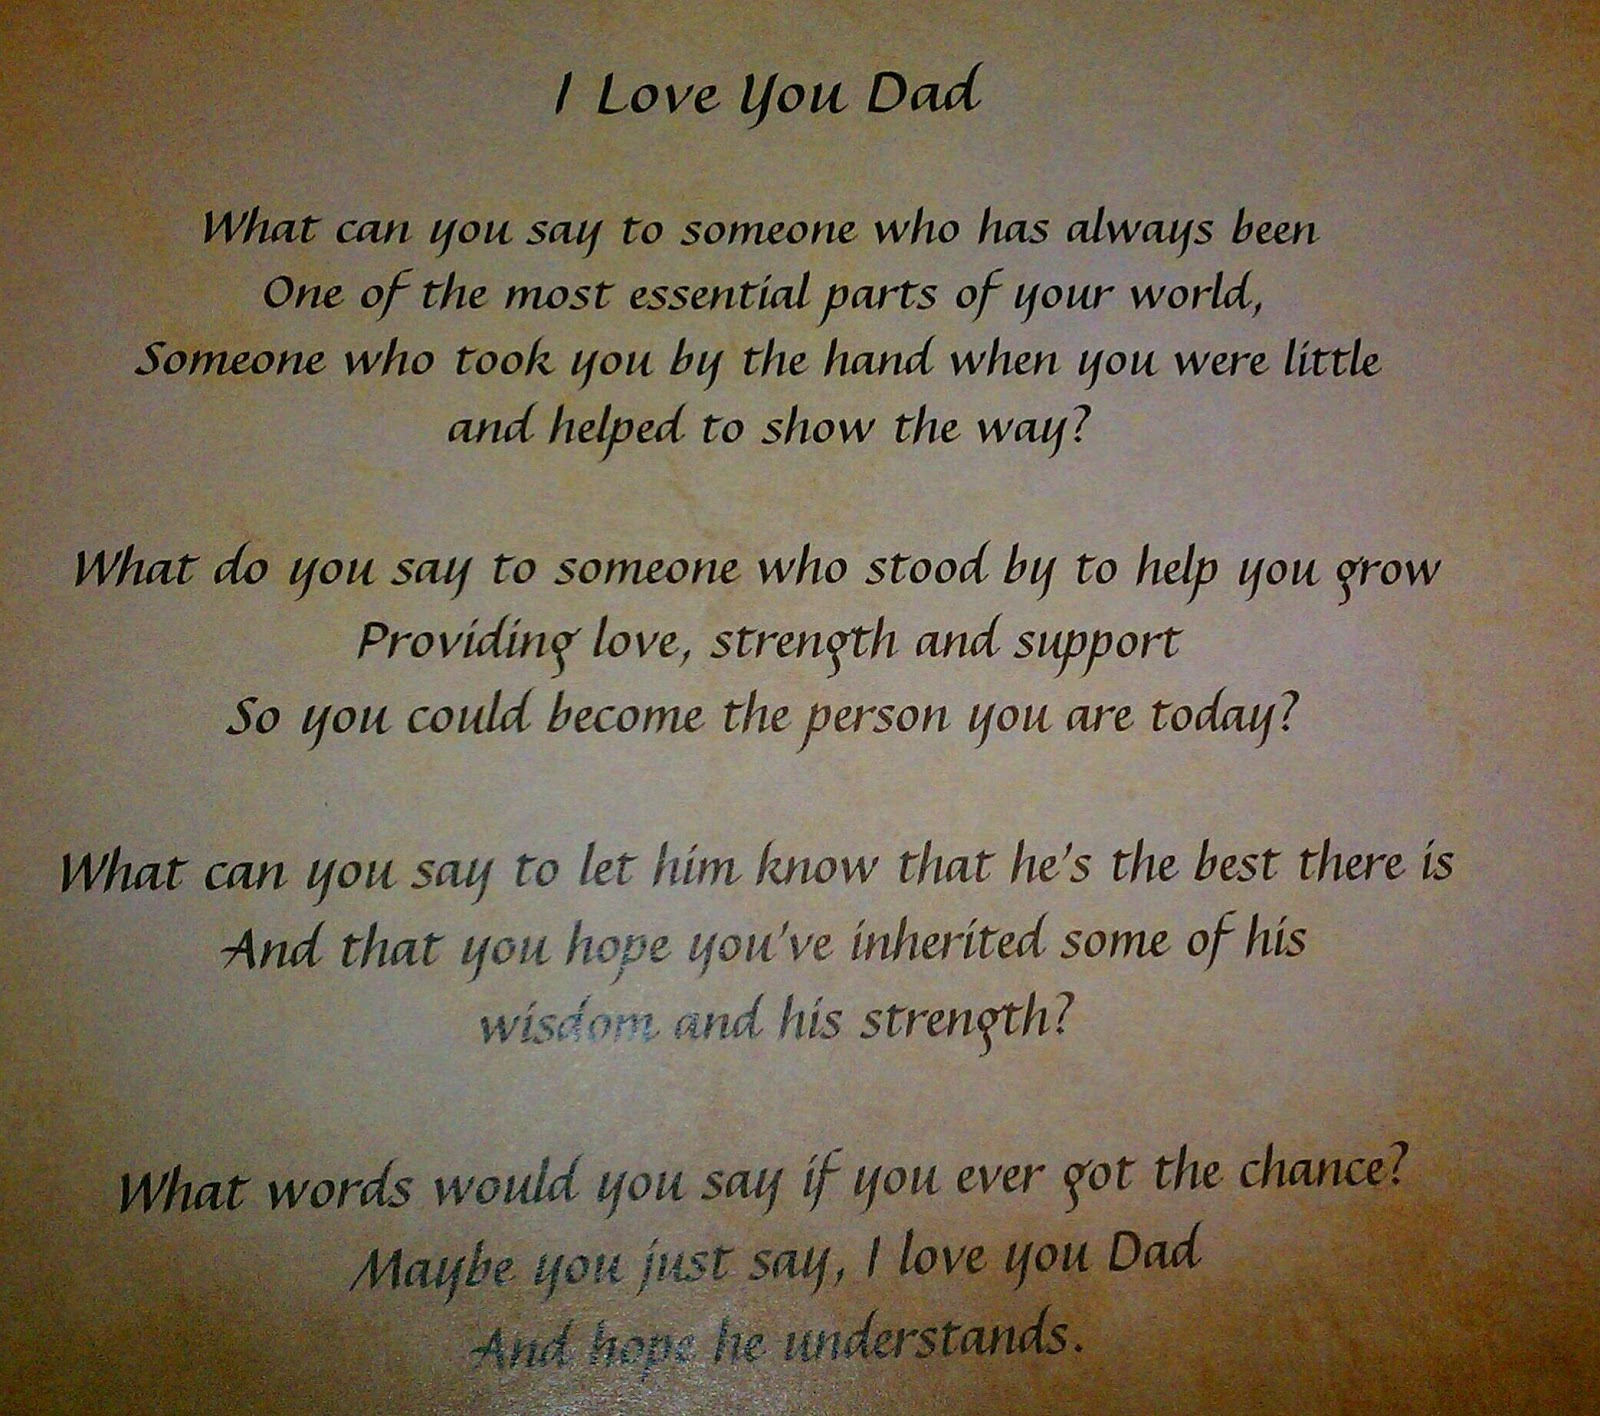 I Love You Dad
What can you say to someone who has always been
One of the most essential parts of your world,
Someone who took you by the hand when you were little
and helped to show the way?
What do you say to someone who stood by to help you grow
Providing love, strength and support
So you could become the person you are today?
What can you say to let him know that he's the best there is
And that you hope you've inherited some of his
wisdom and his strength?
What words would you say if you ever got the chance?
Maybe you just say, I love you Dad
And hope he understands.